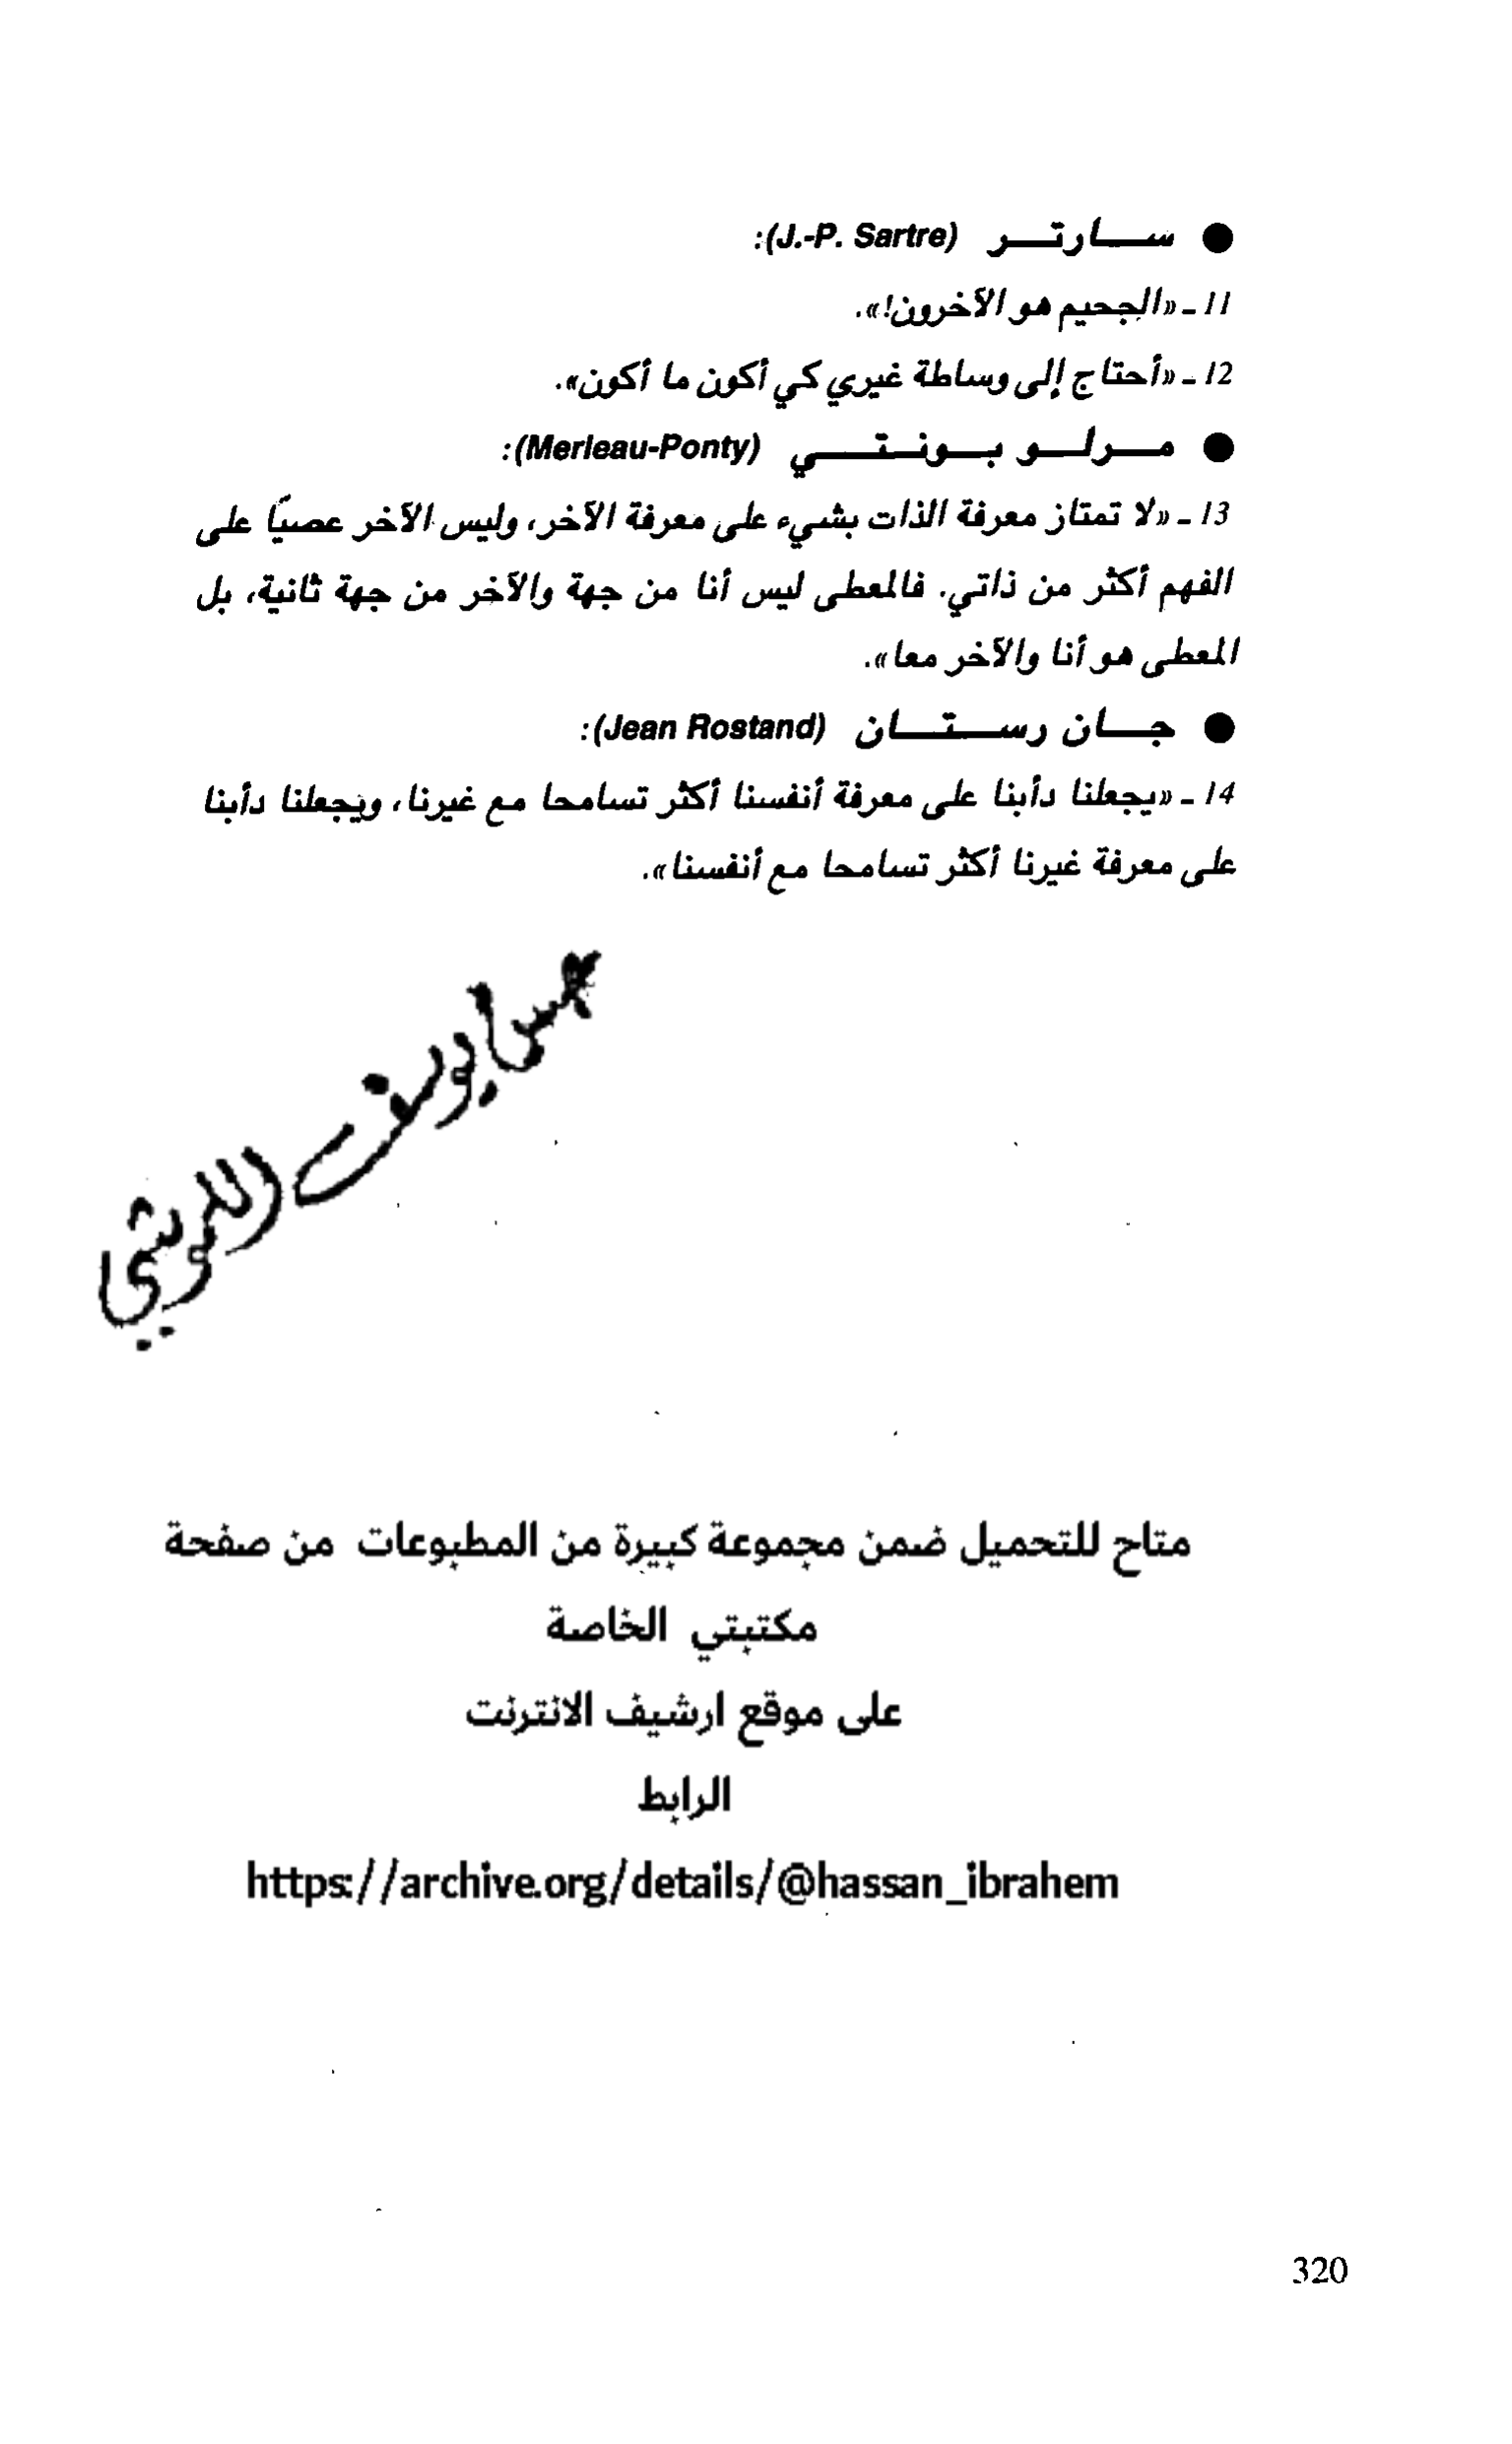 ● سارتر (J.-P. Sartre):
11 ـ «الجحيم هو الآخرون!».
12 ـ «أحتاج إلى وساطة غيري كي أكون ما أكون».
● مرلو بونتي (Merleau-Ponty):
13 ـ «لا تمتاز معرفة الذات بشيء على معرفة الآخر، وليس الآخر عصيّا على
الفهم أكثر من ذاتي. فالمعطى ليس أنا من جهة والآخر من جهة ثانية، بل
المعطى هو أنا والآخر معا».
● جان رستان (Jean Rostand):
14 ـ «يجعلنا دأبنا على معرفة أنفسنا أكثر تسامحا مع غيرنا، ويجعلنا دأبنا
على معرفة غيرنا أكثر تسامحا مع أنفسنا».
متاح للتحميل ضمن مجموعة كبيرة من المطبوعات من صفحة
مكتبتي الخاصة
على موقع ارشيف الانترنت
الرابط
https://archive.org/details/@hassan_ibrahem
320